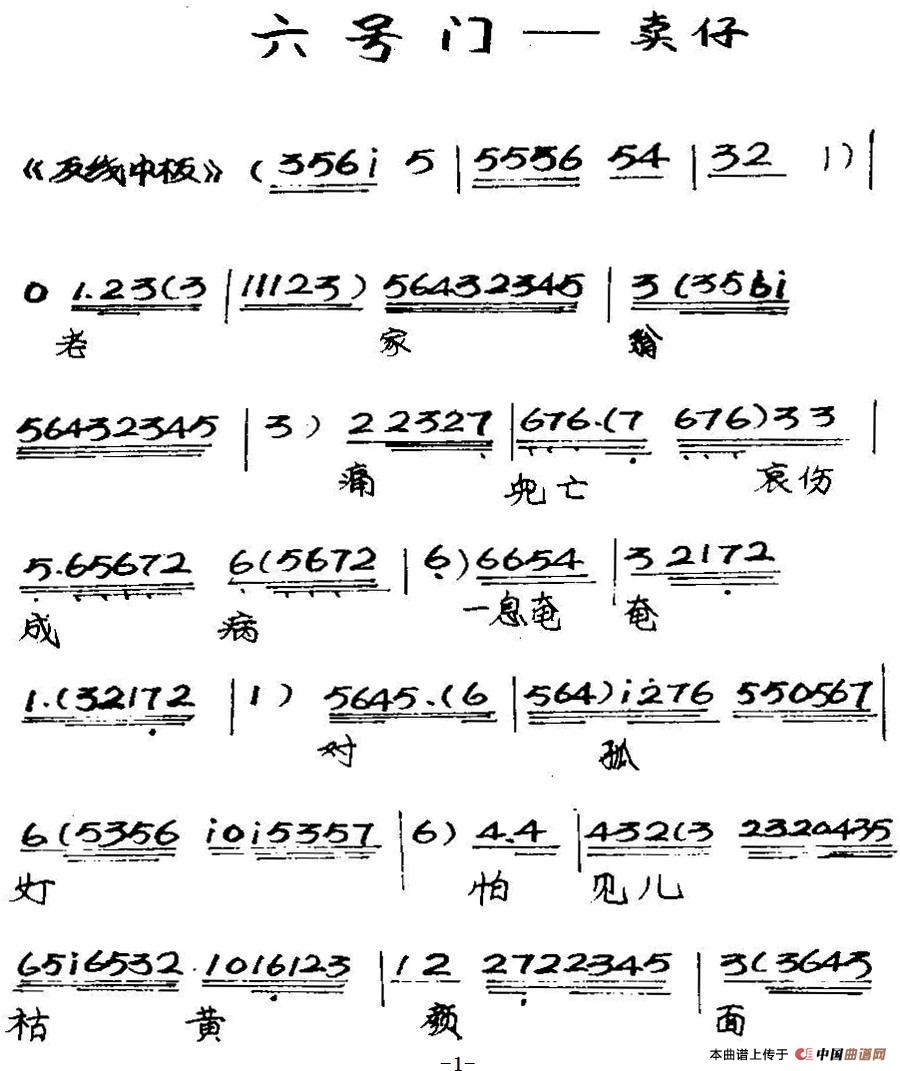 六号门——卖仔
《反线中板》 ( 3561̇ 5 | 5556 54 | 32 1) |
0 1.23(3 | 11123) 56432345 | 3 (3561̇
老 家 翁
56432345 | 3) 2 2327 | 676.(7 676)33 |
痛 儿亡 哀伤
5.65672 6(5672 | 6) 6654 | 3 2172
成 病 一息奄 奄
1.(32172 | 1) 5645.(6 | 564)1̇2̇76 550567 |
对 孤
6(5356 1̇01̇5357 | 6) 4.4 | 432(3 2320435
灯 怕 见儿
651̇6532 1016123 | 12 2722345 | 3(3643
枯 黄 颜 面
-1-
本曲谱上传于 中国曲谱网